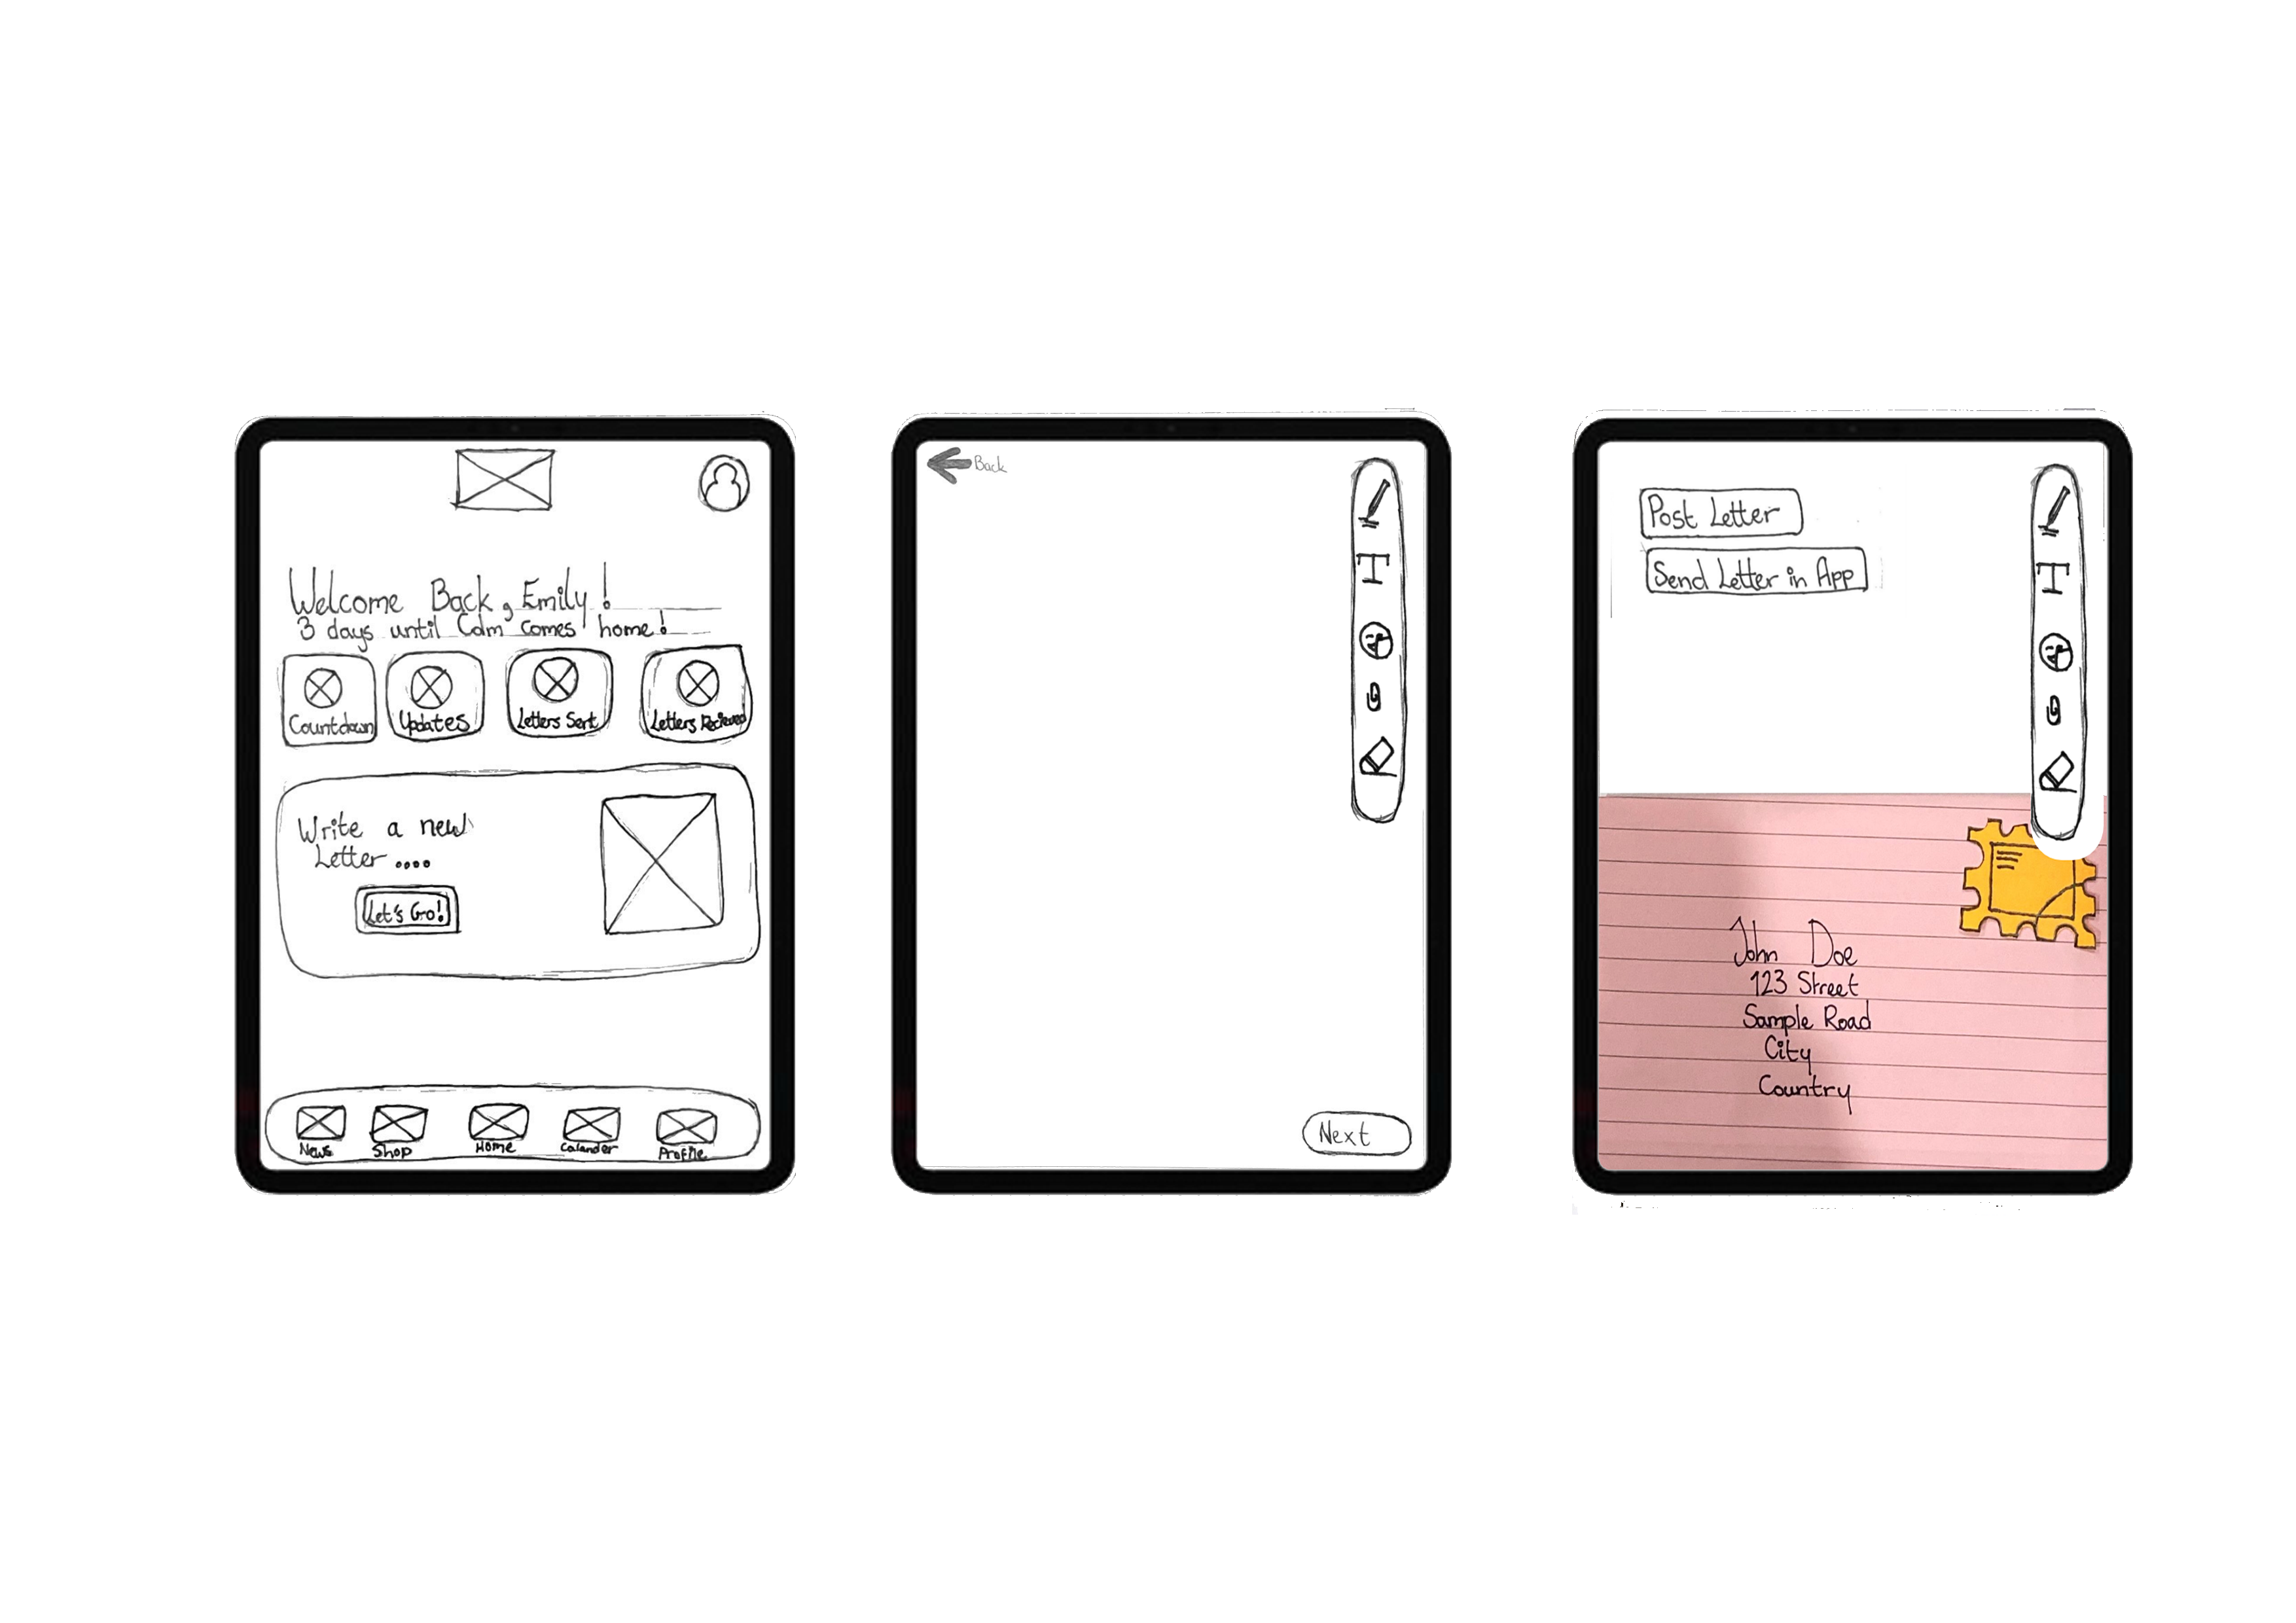 Welcome Back, Emily!
3 days until Calm comes home!
Countdown
Updates
Letters Sent
Letters Recieved
Write a new
Letter ....
Let's Go!
News
Shop
Home
Calander
Profile
Back
T
Next
Post Letter
Send Letter in App
T
John Doe
123 Street
Sample Road
City
Country